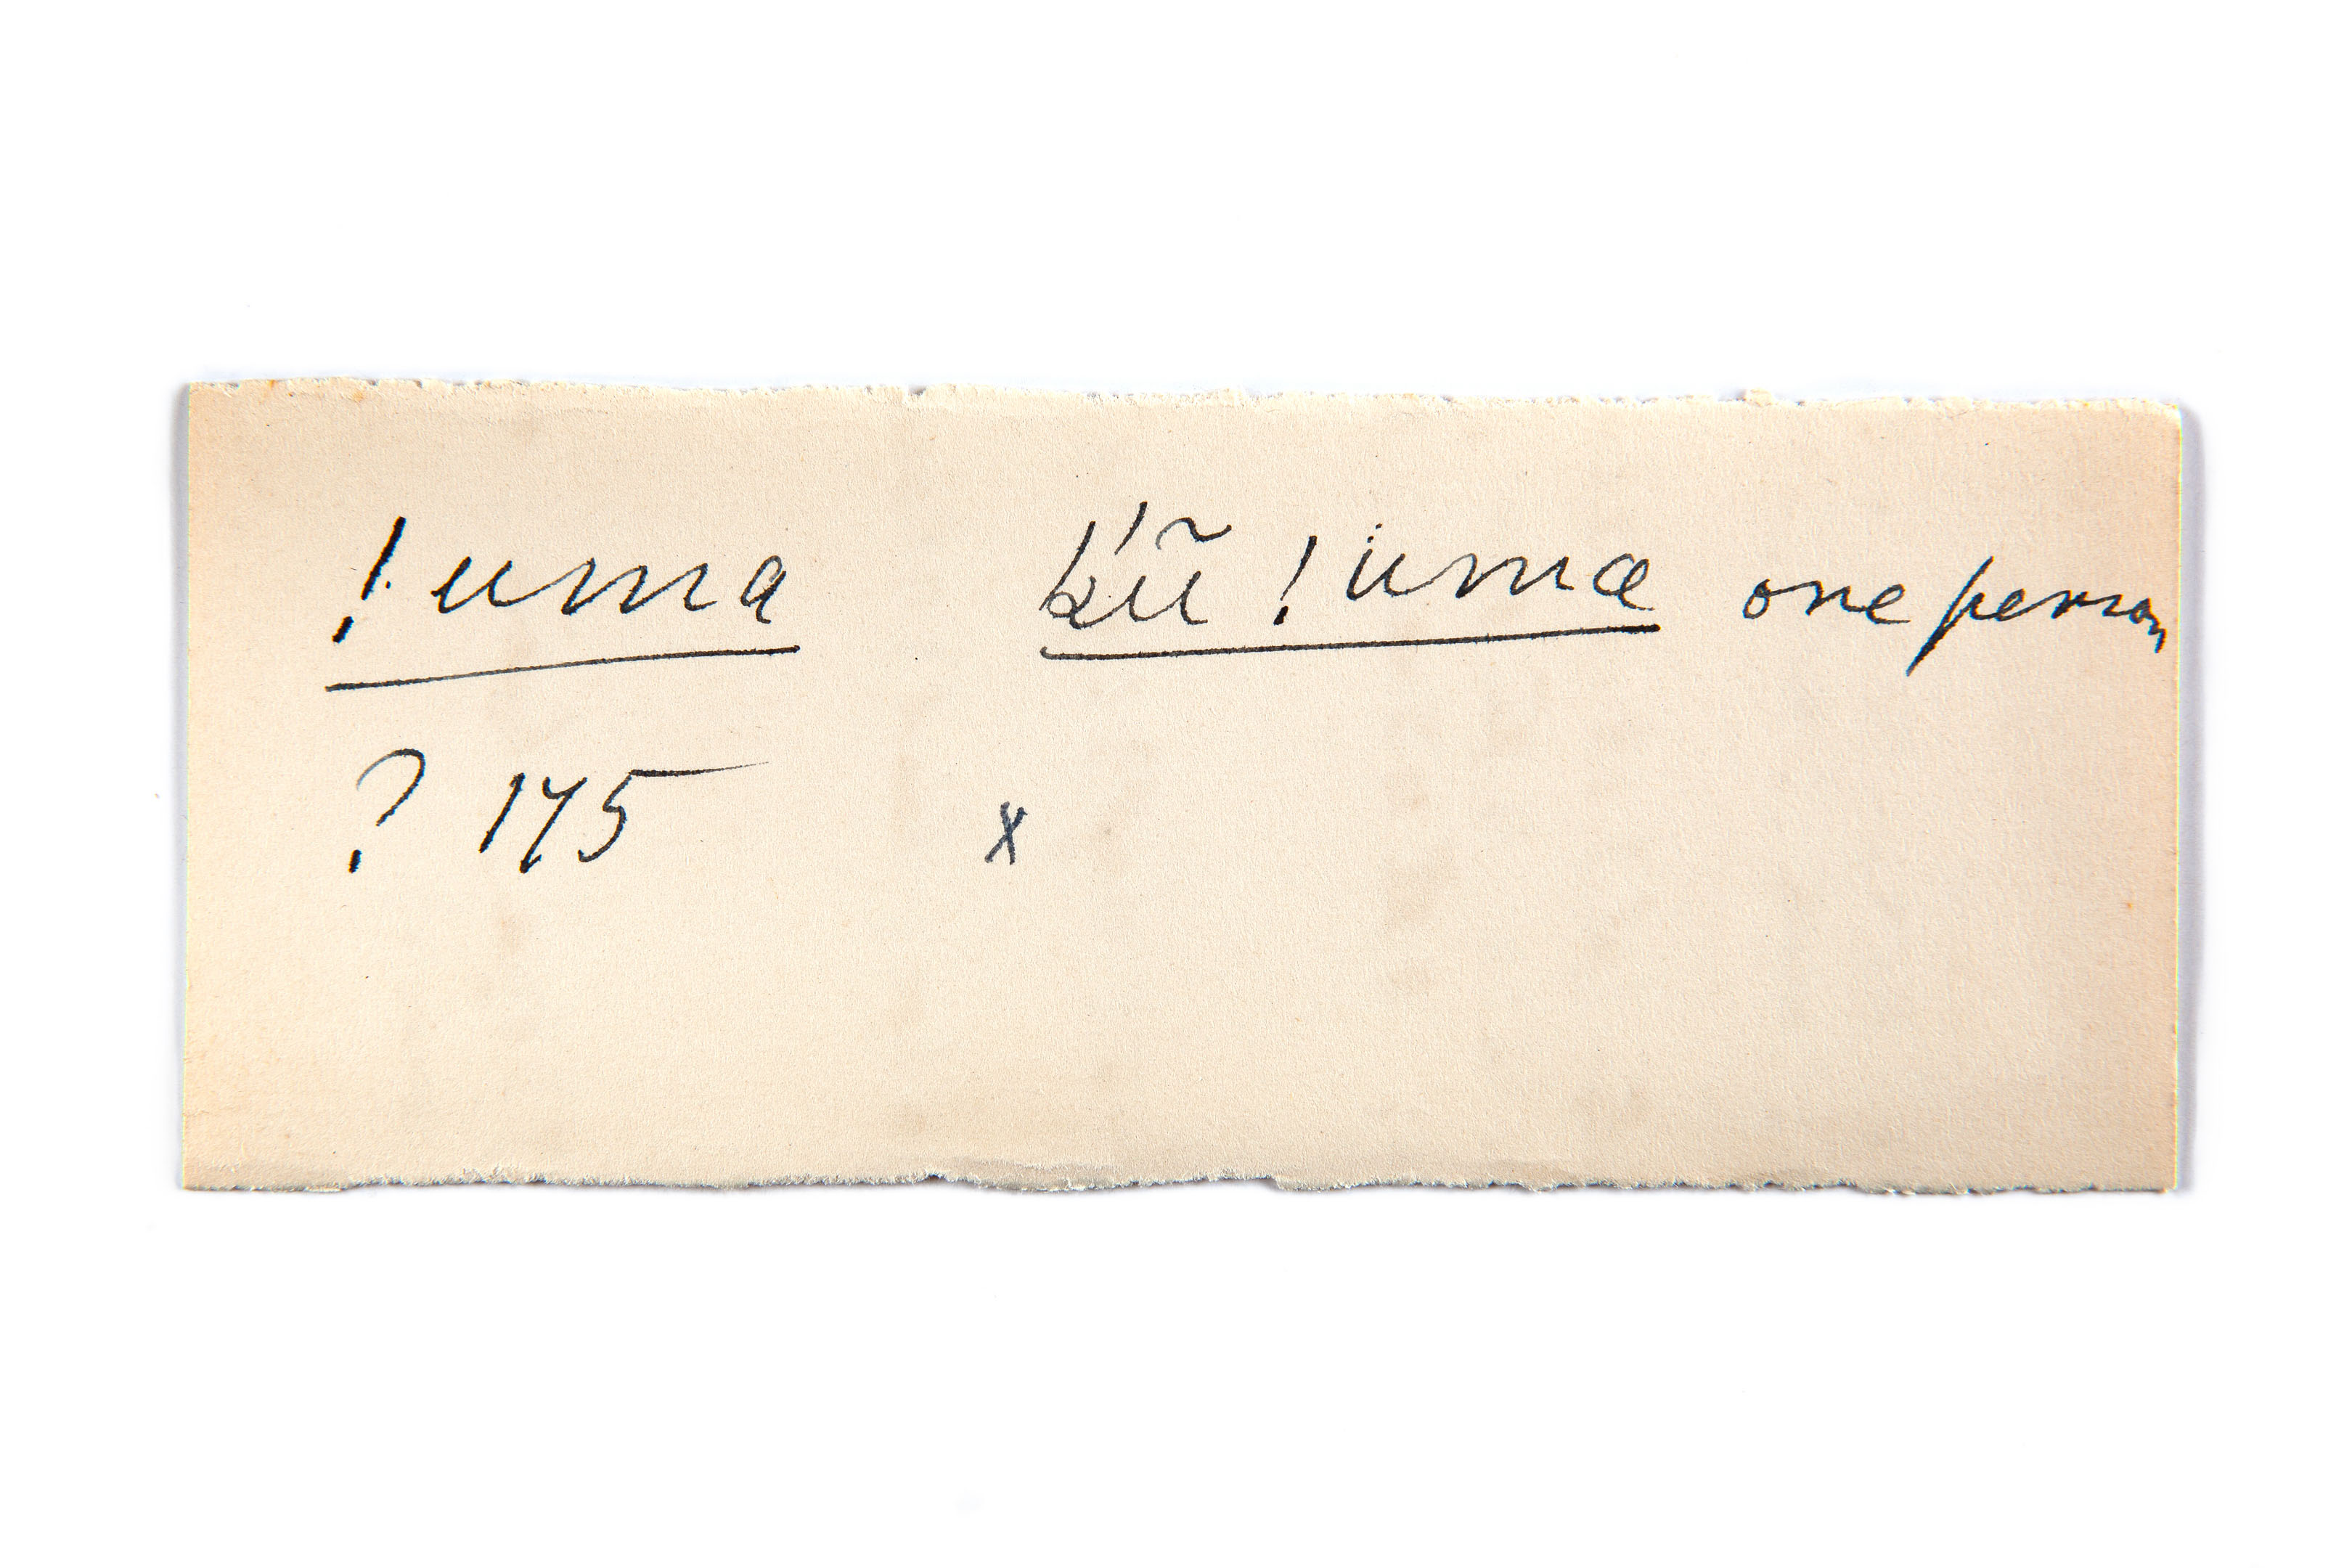 !uma k'ũ !uma one person
? 175 x